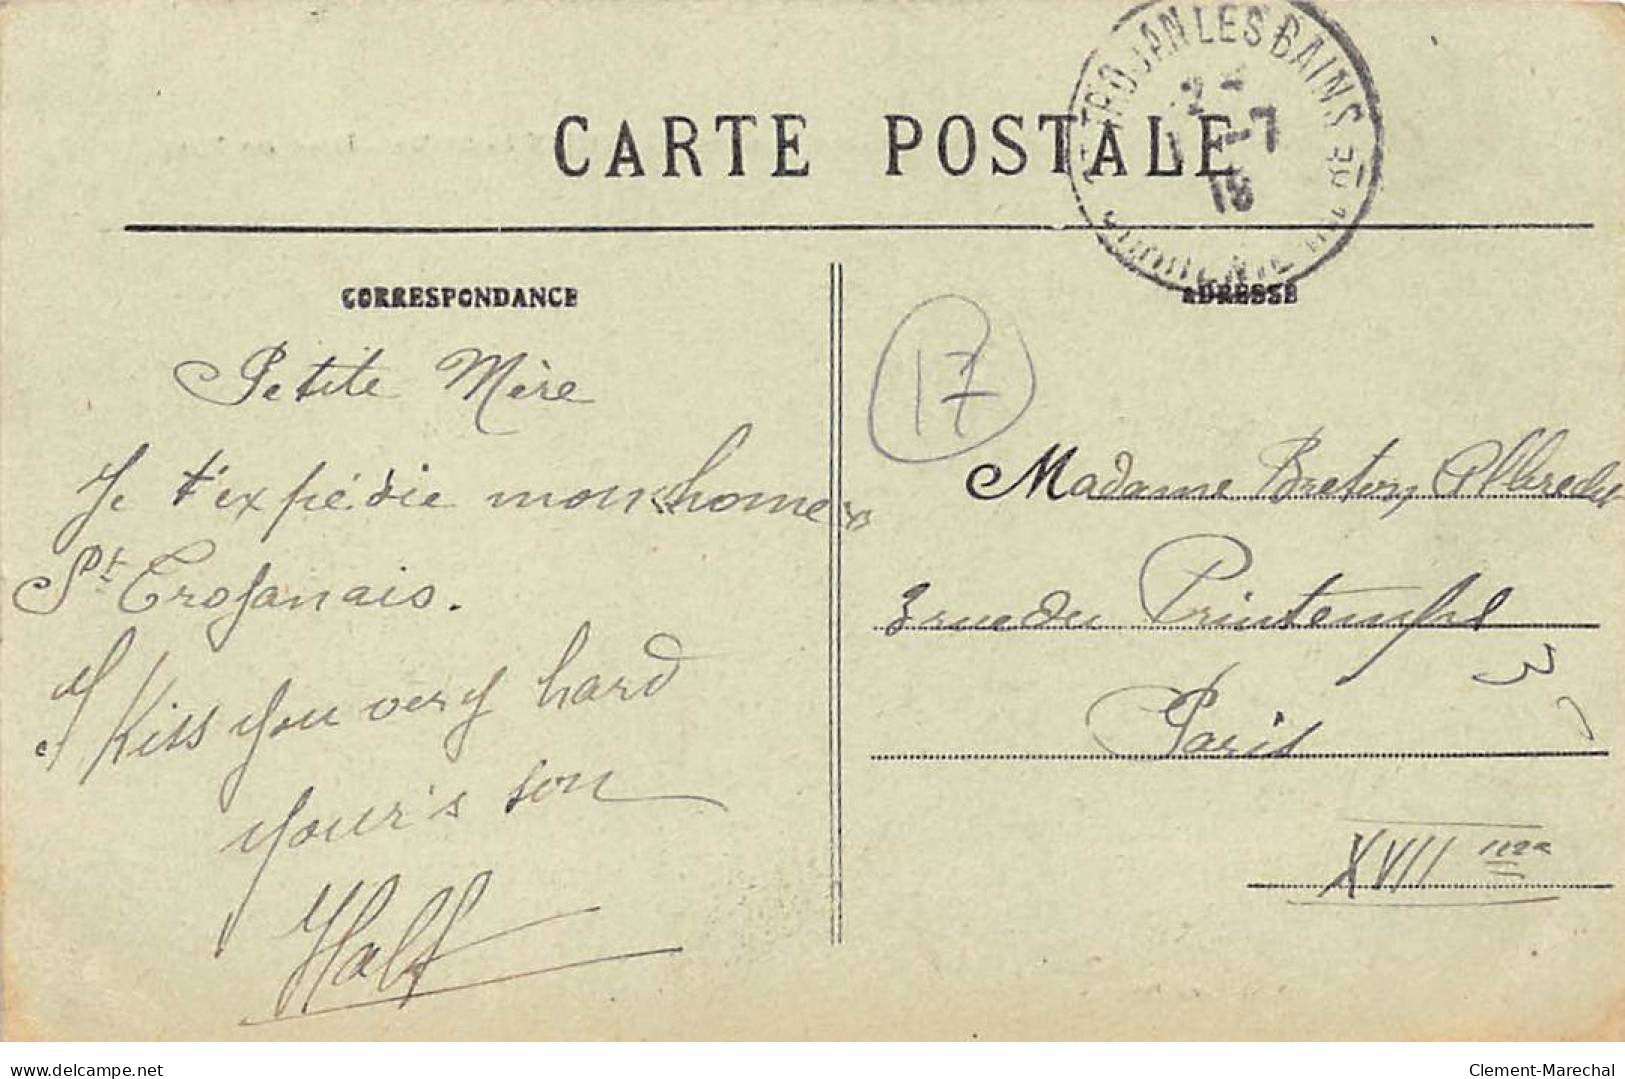 CARTE POSTALE
ST TROJAN LES BAINS
CHARENTE INFRE
7
CORRESPONDANCE
ADRESSE
Petite Mère
Je t'expédie mon "home"
St Trojanais.
I Kiss you very hard
your's son
Half
17
Madame Breton
3 rue du Printemps
Paris
XVII ème
delcampe.net
Clement-Marechal